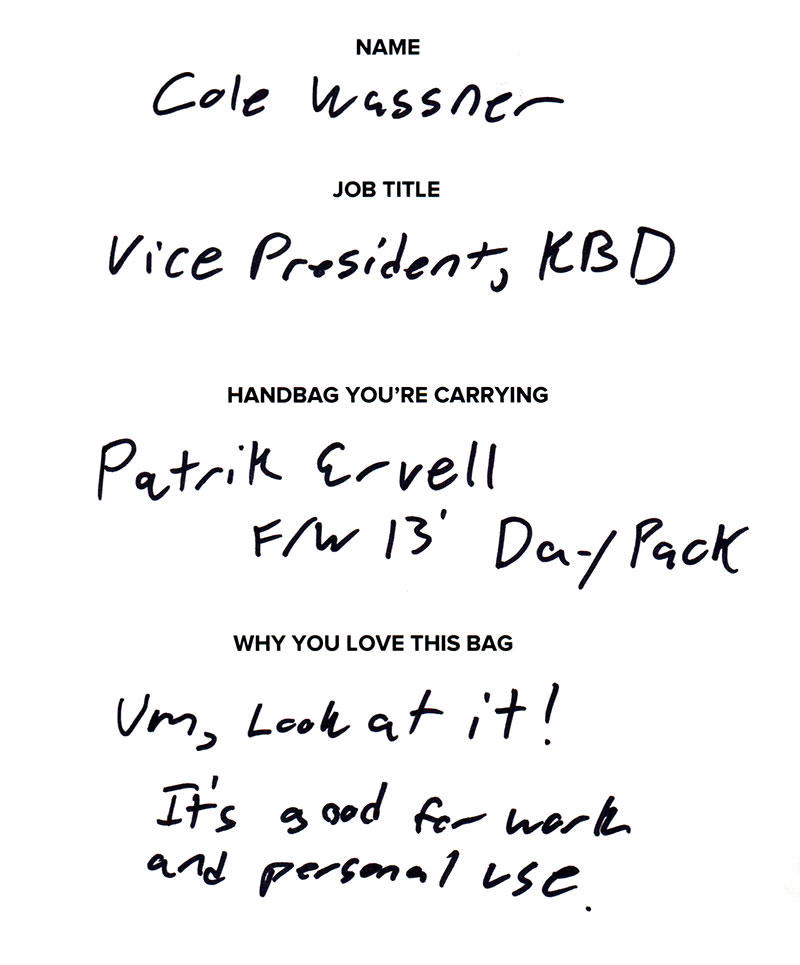 NAME
Cole Wassner
JOB TITLE
Vice President, KBD
HANDBAG YOU'RE CARRYING
Patrik Ervell
F/W 13' Day Pack
WHY YOU LOVE THIS BAG
Um, Look at it!
It's good for work
and personal use.